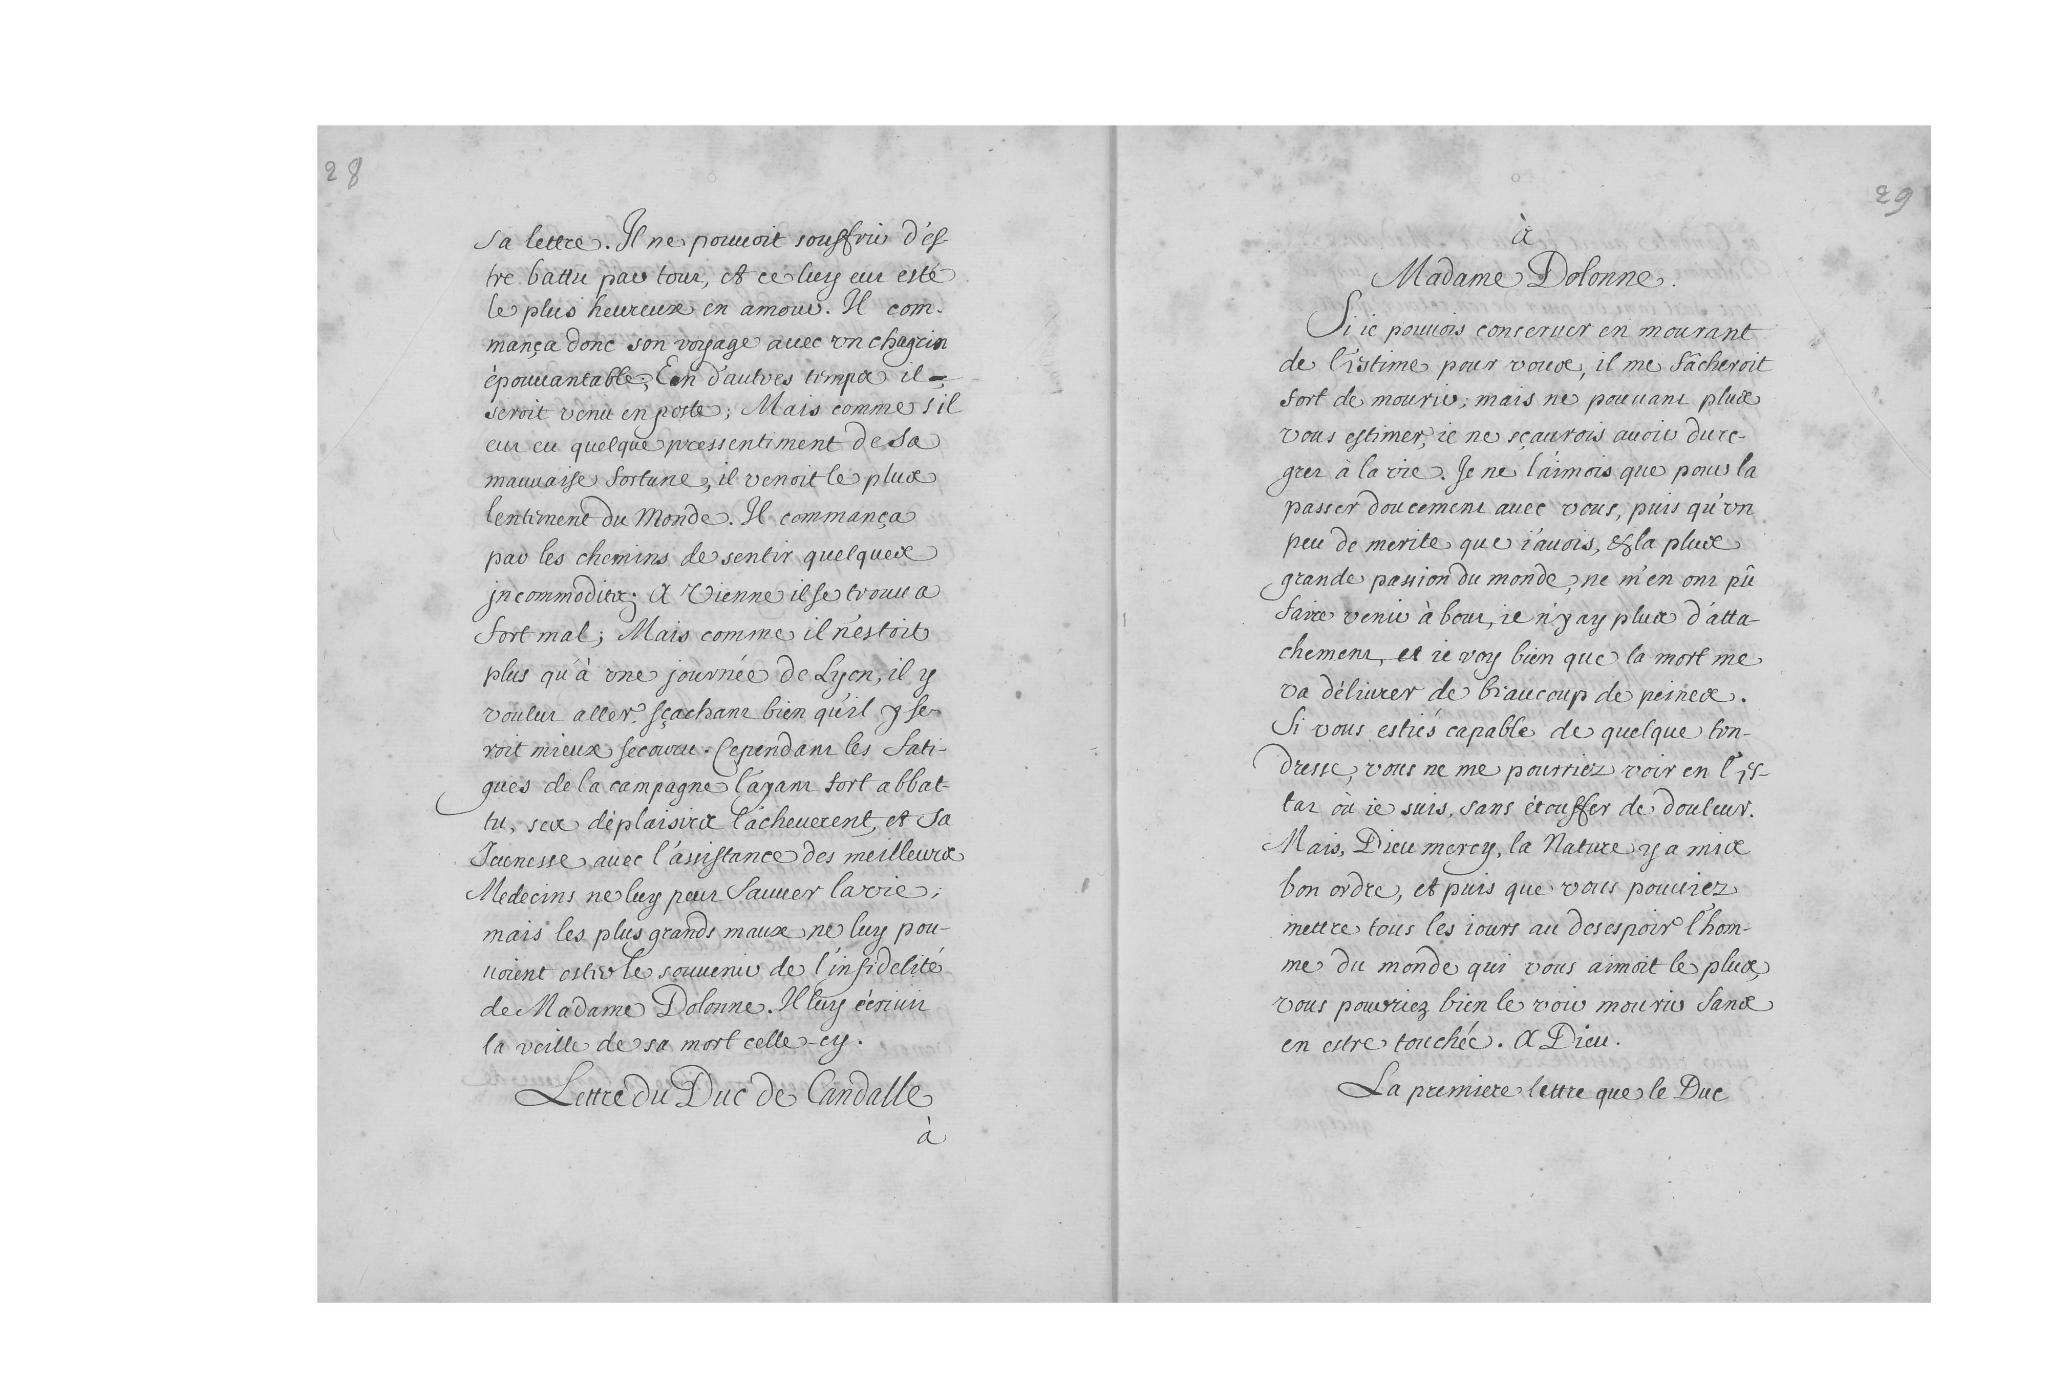 28
sa lettre. Il ne pouuoit souffrir d'es-
tre battu par tour, et ce luy eut esté
le plus heureux en amour. Il com-
mança donc son voyage auec vn chagrin
épouuantable, En d'autres temps il
seroit venu en poste; Mais comme s'il
eut eu quelque pressentiment de sa
mauuaise fortune, il venoit le plus
lentement du Monde. Il commança
par les chemins de sentir quelques
jncommoditez; A Vienne il se trouua
fort mal; Mais comme il n'estoit
plus qu'à vne journée de Lyon, il y
voulut aller, sçachant bien qu'il y se-
roit mieux secouru. Cependant les fati-
gues de la campagne l'ayant fort abbat-
tu, ses déplaisirs l'acheuerent, et sa
Jeunesse auec l'assistance des meilleurs
Medecins ne luy peut sauuer la vie;
mais les plus grands maux ne luy pou-
uoient oster le souuenir de l'infidelité
de Madame Dolonne. Il luy écriuit
la veille de sa mort celle-cy.
Lettre du Duc de Candalle
à
29
à
Madame Dolonne.
Si ie pouuois conseruer en mourant
de l'estime pour vous, il me fâcheroit
fort de mourir; mais ne pouuant plus
vous estimer, ie ne sçaurois auoir du re-
gret à la vie. Je ne l'aimois que pour la
passer doucement auec vous, puis qu'vn
peu de merite que i'auois, & la plus
grande passion du monde, ne m'en ont pû
faire venir à bout, ie n'y ay plus d'atta-
chement, et ie voy bien que la mort me
va déliurer de beaucoup de peines.
Si vous estiés capable de quelque ten-
dresse, vous ne me pourriez voir en l'es-
tat où ie suis, sans étouffer de douleur.
Mais, Dieu mercy, la Nature y a mis
bon ordre, et puis que vous pouuiez
mettre tous les iours au desespoir l'hom-
me du monde qui vous aimoit le plus,
vous pourriez bien le voir mourir sans
en estre touchée. A Dieu.
La premiere lettre que le Duc